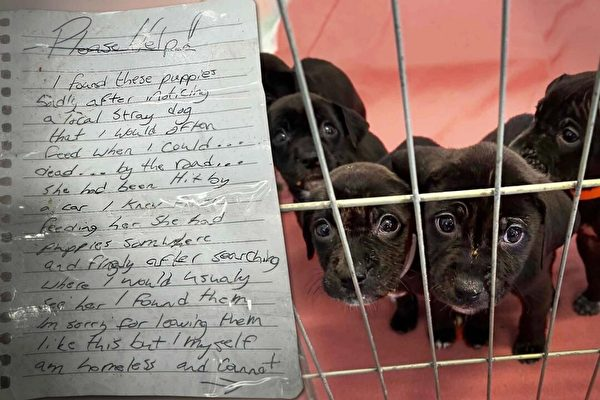 Please Help!!
I found these puppies
Sadly after noticing
a local stray dog
that I would often
feed when I could...
dead... by the road...
she had been Hit by
a car I knew
feeding her she had
puppies somwhere
and finaly after searching
where I would usualy
see her I found them
Im sorry for leaving them
like this but I myself
am homeless and cannot